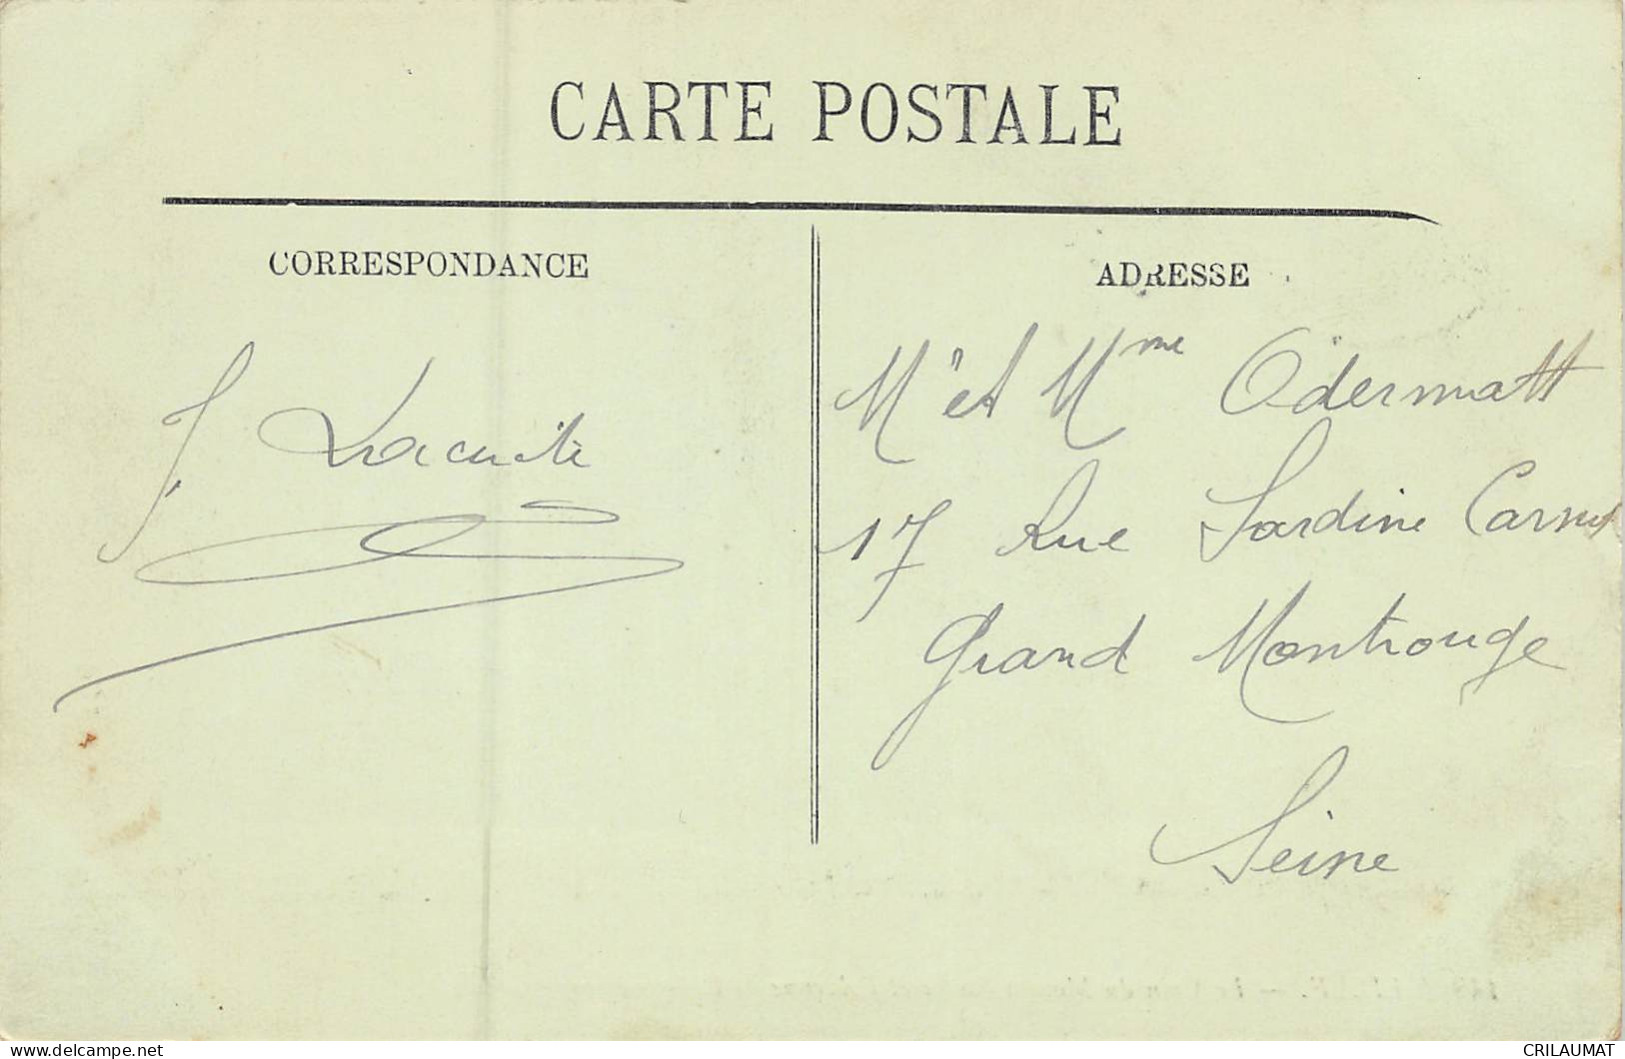 CARTE POSTALE
CORRESPONDANCE
J.
ADRESSE
Mr et Mme Odermatt
17 Rue Sardine Carnot
Grand Montrouge
Seine
www.delcampe.net
CRILAUMAT